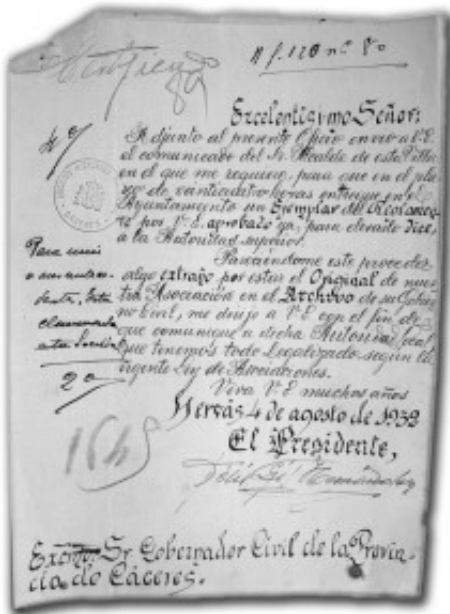 Excelentisymo Señor:
Adjunto al presente Oficio envio a V.E.
el comunicado del Sr. Alcalde de esta Villa
en el que me requiere, para que en el pla-
zo de veinticuatro horas entregue en el
Ayuntamiento un Ejemplar del Reglamen-
to por V.E. aprobado ya, para elevarlo dice,
a la Autoridad superior.
Pareciéndome este proceder
algo extraño por estar el Original de nues-
tra Asociación en el Archivo de su Gobier-
no Civil, me dirijo a V.E. con el fin de
que comunique a dicha Autoridad local
que tenemos todo Legalizado según la
vigente Ley de Asociaciones.
Viva V.E. muchos años
Hervás 4 de agosto de 1932
El Presidente,
4º
Para
2º
1645
Excmo. Sr. Gobernador Civil de la Provin-
cia de Cáceres.